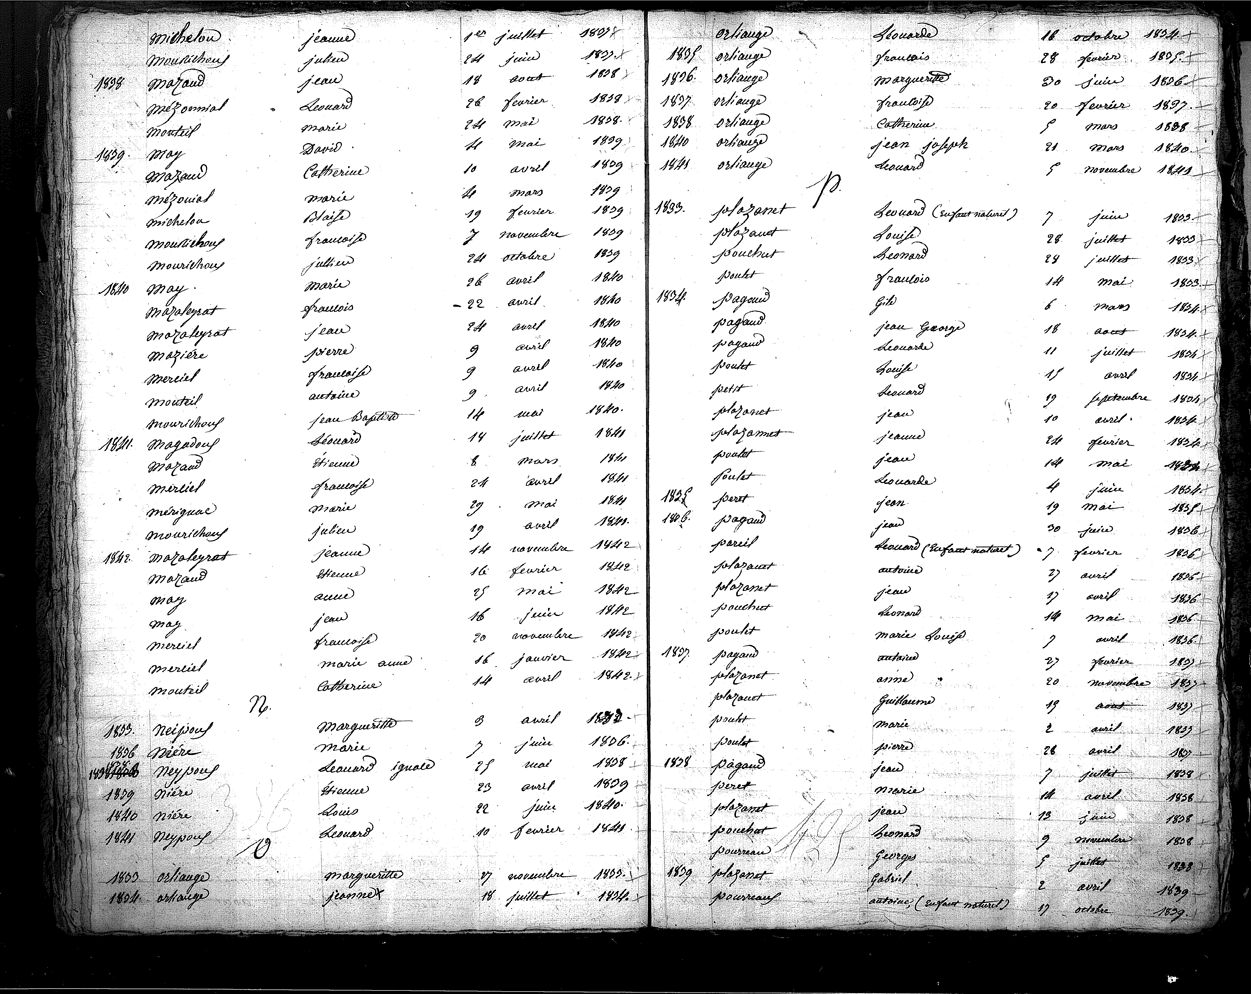 michelou jeanne 1er juillet 1837
Mourichoux julien 24 juin 1837
1838 Mazaud jean 18 aout 1838
Mézonnial Léonard 26 fevrier 1838
Monteil marie 24 mai 1838
1839. May David 4 mai 1839
Mazaud Catherine 10 avril 1839
Mézonial marie 4 mars 1839
Michelou Blaise 19 fevrier 1839
Mourichoux francoise 7 novembre 1839
Mourichoux jullien 24 octobre 1839
1840 May marie 26 avril 1840
Mazaleyrat francois 22 avril 1840
Mazaleyrat jean 24 avril 1840
Mazière pierre 9 avril 1840
Merciel francoise 9 avril 1840
Monteil antoine 9 avril 1840
Mourichoux jean Baptiste 14 mai 1840
1841. Magadoux Léonard 18 juillet 1841
Mazaud Etienne 8 mars 1841
Merciel francoise 24 avril 1841
Mérignac marie 29 mai 1841
Mourichoux julien 19 avril 1841
1842 Mazaleyrat jeanne 14 novembre 1842
Mazaud Etienne 16 fevrier 1842
May anne 25 mai 1842
May jean 16 juin 1842
Merciel francoise 20 novembre 1842
Merciel marie anne 16 janvier 1842
Monteil Catherine 14 avril 1842
N.
1833. Neipoux Margueritte 3 avril 1833
1836 Nière marie 7 juin 1836
1838 Neypoux Léonard ignace 25 mai 1838
1839 Nière Etienne 23 avril 1839
1840 Nière Louis 22 juin 1840
1841 Neypoux Léonard 10 fevrier 1841
O
1833 orliange margueritte 17 novembre 1833
1834 orliange jeanne 18 juillet 1834
orliange Léonarde 16 octobre 1834
1835 orliange francois 28 fevrier 1835
1836 orliange margueritte 30 juin 1836
1837 orliange francoise 20 fevrier 1837
1838 orliange Catherine 5 mars 1838
1840 orliange jean joseph 21 mars 1840
1841 orliange Léonard 5 novembre 1841
P.
1833. plazanet Léonard (Enfant naturel) 7 juin 1833
plazanet Louise 28 juillet 1833
pouchut Léonard 28 juillet 1833
poulet francois 14 mai 1833
1834 pagaud 6 mars 1834
pagaud jean George 18 aout 1834
pagaud Léonarde 11 juillet 1834
poulet Louise 15 avril 1834
petit Léonard 19 septembre 1834
plazanet jean 10 avril 1834
plazannet jeanne 24 fevrier 1834
poulet jean 14 mai 1834
poulet Léonarde 4 juin 1834
1835 peret jean 19 mai 1835
1836. pagaud jean 30 juin 1836
pareil Léonard (Enfant naturel) 7 fevrier 1836
plazanet antoine 27 avril 1836
plazanet jean 17 avril 1836
pouchut Léonard 14 mai 1836
poulet marie Louise 7 avril 1836
1837 pagaud antoine 27 fevrier 1837
plazanet anne 20 novembre 1837
plazanet Guillaume 19 aout 1837
poulet marie 2 avril 1837
poulet pierre 28 avril 1837
1838 pagaud jean 7 juillet 1838
peret marie 14 avril 1838
plazanet jean 13 juin 1838
pouchut Léonard 9 novembre 1838
pourreau Georges 5 juillet 1838
1839 plazanet Gabriel 2 avril 1839
pourreaux antoine, (Enfant naturel) 17 octobre 1839